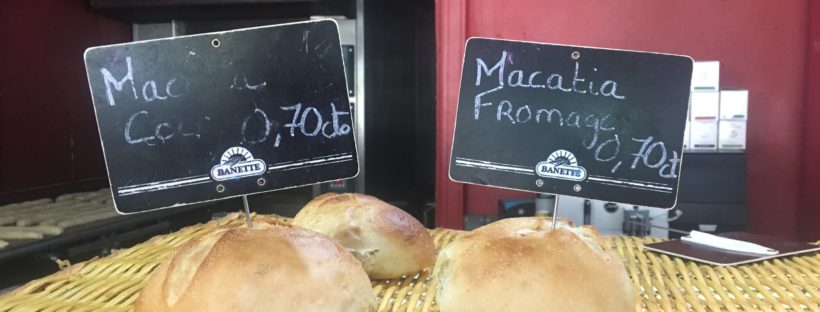 0,70cts
BANETTE
Macatia
Fromage
0,70ct
BANETTE